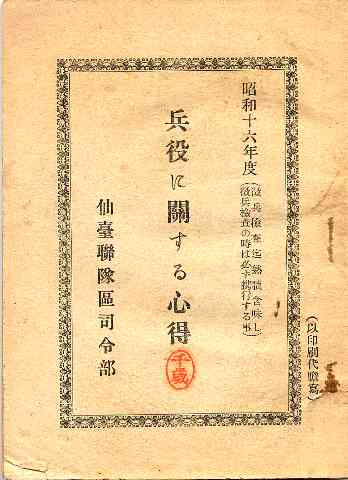 (以印刷代謄寫)
昭和十六年度
(徴兵檢査迄熟讀含味し
徴兵檢査の時は必ず携行する事)
兵役に關する心得
千歳
仙臺聯隊區司令部